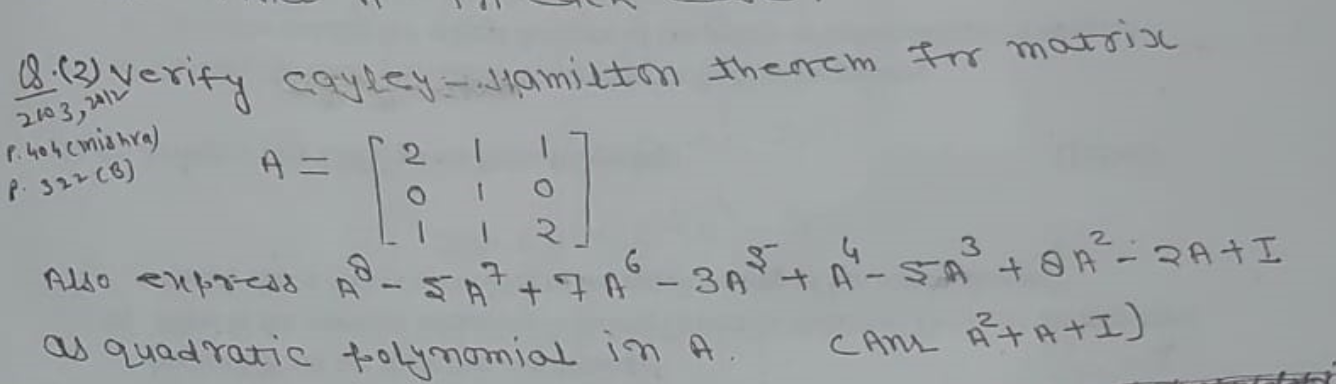 Q.(2) Verify cayley-Hamilton theorem for matrix
2003, 2012
P. 404 (mishra)
P. 322 (B)
A = [2 1 1
0 1 0
1 1 2]
Also express A⁸ - 5A⁷ + 7A⁶ - 3A⁵ + A⁴ - 5A³ + 8A² - 2A + I
as quadratic polynomial in A. (Ans A² + A + I)